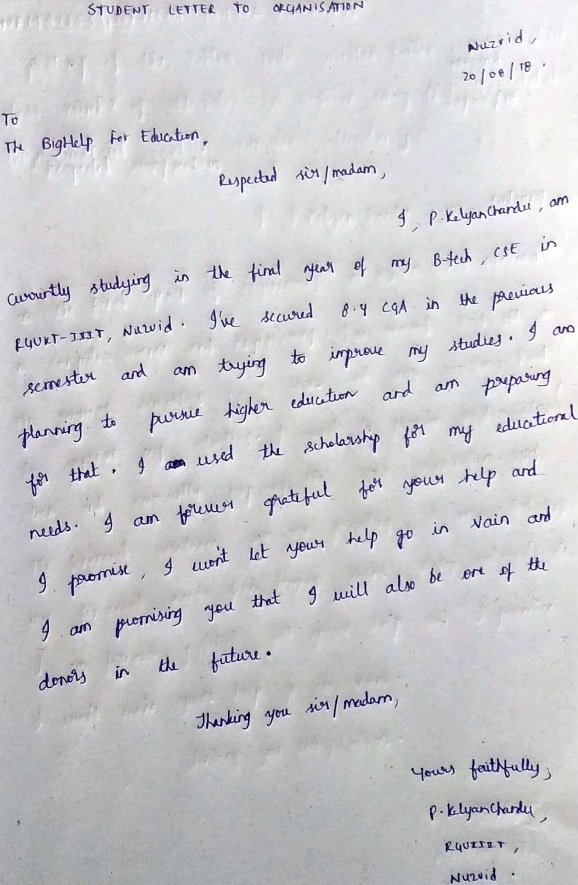 STUDENT LETTER TO ORGANISATION
Nuzvid,
20/08/18.
To
The BigHelp for Education,
Respected sir/madam,
I, P. Kalyan Chandu, am
currently studying in the final year of my B-tech, CSE in
RGUKT-IIIT, Nuzvid. I've secured 8.4 CGA in the previous
semester and am trying to improve my studies. I am
planning to pursue higher education and am preparing
for that. I used the scholarship for my educational
needs. I am forever grateful for your help and
I promise, I won't let your help go in vain and
I am promising you that I will also be one of the
donors in the future.
Thanking you sir/madam,
Yours faithfully,
P. Kalyan Chandu,
RGUIIIT,
Nuzvid.